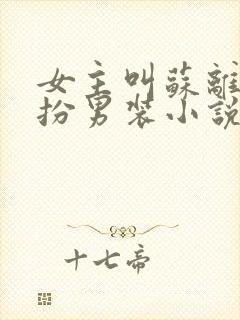 女主叫蘇離
扮男裝小說
十七帝